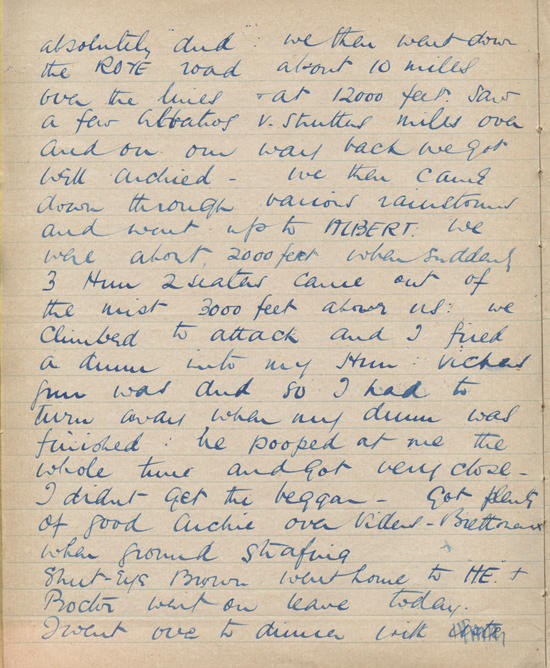 absolutely dud : we then went down
the ROYE road about 10 miles
over the lines + at 12000 feet. Saw
a few Albatros V. Strutters miles over
and on our way back we got
well archied - we then came
down through various rainstorms
and went up to ALBERT. we
were about 2000 feet when suddenly
3 Hun 2 seaters came out of
the mist 3000 feet above us : we
climbed to attack and I fired
a drum into my Hun : Vickers
gun was dud so I had to
turn away when my drum was
finished : he pooped at me the
whole time and got very close -
I didn't get the beggar - Got plenty
of good Archie over Villers-Brettoneux
when ground strafing
Shut-Eye Brown went home to HE. +
Proctor went on leave today.
I went over to dinner with